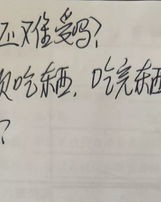 还难受吗？
吃东西，吃完东西
？